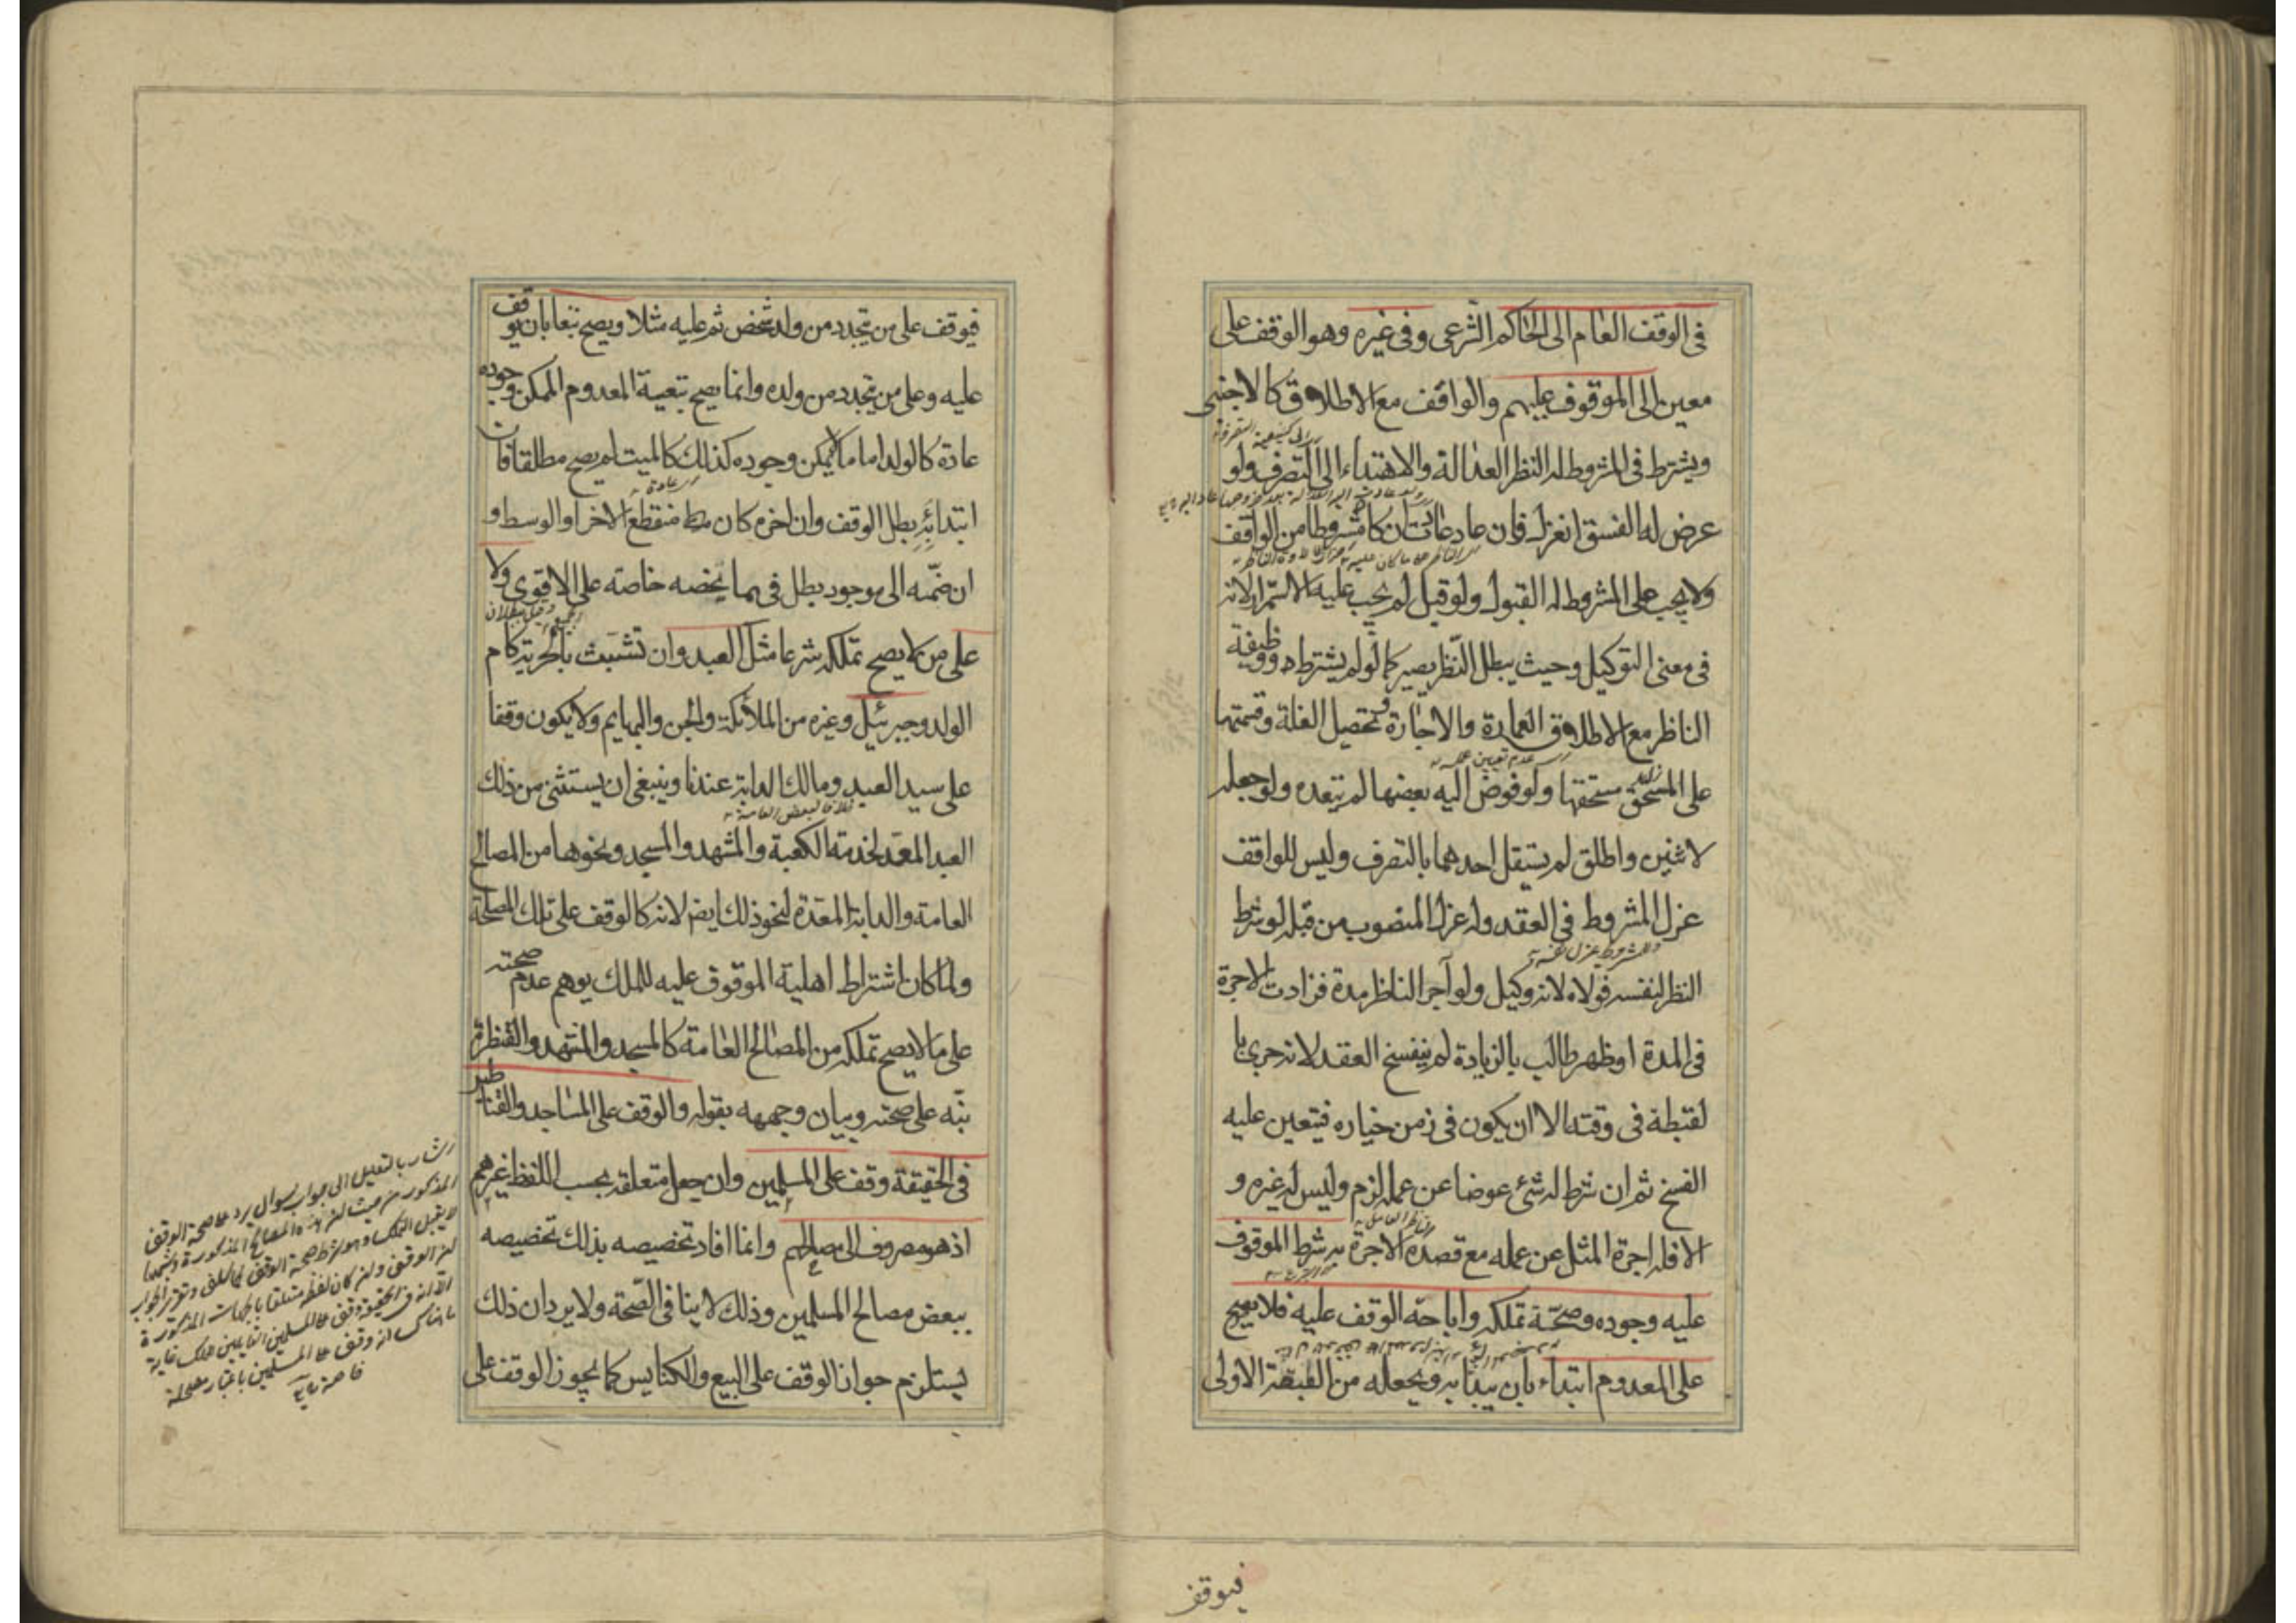 في الوقف العام الى الحاكم الشرعي وفي غيره وهو الوقف على
معين الى الموقوف عليهم والواقف مع الاطلاق كالاجنبي
ويشترط في المشروط له النظر العدالة والاهتداء الى التصرف ولو
عرض له الفسق انعزل فان عاد عادت ان كان مشروطا من الواقف
ولا يجب على المشروط له القبول ولو قبل لم يجب عليه الاستمرار لانه
في معنى التوكيل وحيث يبطل النظر يصير كما لو لم يشترط ووظيفة
الناظر مع الاطلاق العمارة والاجارة وتحصيل الغلة وقسمتها
على مستحقها ولو فوض اليه بعضها لم يتعده ولو جعله
لاثنين واطلق لم يستقل احدهما بالتصرف وليس للواقف
عزل المشروط في العقد وله عزل المنصوب من قبله لو شرط
النظر لنفسه فولاه لانه وكيل ولو آجر الناظر مدة فزادت الاجرة
في المدة او ظهر طالب بالزيادة لم ينفسخ العقد لانه جرى با
لغبطة في وقته الا ان يكون في زمن خياره فيتعين عليه
الفسخ ثم ان شرط له شئ عوضا عن عمله لزم وليس له غيره و
الا فله اجرة المثل عن عمله مع قصده الاجرة به شرط الموقوف
عليه وجوده وصحة تملكه واباحة الوقف عليه فلا يصح
على المعدوم ابتداء بان يبدأ به ويجعله من الطبقة الاولى
فيوقف
فيوقف على من يتجدد من ولد شخص ثم عليه مثلا ويصح تبعا بان يوقف
عليه وعلى من يتجدد من ولده وانما يصح تبعية المعدوم الممكن وجوده
عادة كالولد اما ما لا يمكن وجوده كذلك كالميت لم يصح مطلقا فان
ابتدا به بطل الوقف وان اخره كان منقطع الاخر او الوسط و
ان ضمه الى موجود بطل فيما يخصه خاصة على الاقوى ولا
على من لا يصح تملكه شرعا مثل العبد وان تشبث بالحرية كام
الولد وجبرئيل وغيره من الملائكة والجن والبهايم ولا يكون وقفا
على سيد العبد ومالك الدابة عندنا وينبغي ان يستثنى من ذلك
خلافا لبعض العامة
العبد المعد لخدمة الكعبة والمشهد والمسجد ونحوها من المصالح
العامة والدابة المعدة لنحو ذلك ايضا لانه كالوقف على تلك المصلحة
ولما كان اشتراط اهلية الموقوف عليه للملك يوهم عدم صحته
على ما لا يصح تملكه من المصالح العامة كالمسجد والمشهد والقنطرة
نبه على صحته وبيان وجهه بقوله والوقف على المساجد والقناطير
في الحقيقة وقف على المسلمين وان جعل متعلقه بحسب اللفظ غيرهم
اذ هو مصروف الى مصالحهم وانما افاد تخصيصه بذلك تخصيصه
ببعض مصالح المسلمين وذلك لا ينافي الصحة ولا يرد ان ذلك
يستلزم جواز الوقف على البيع والكنايس كما يجوز الوقف على